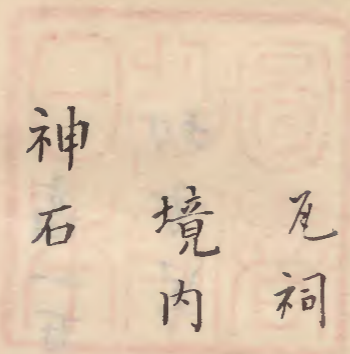 瓦祠
境内
神石